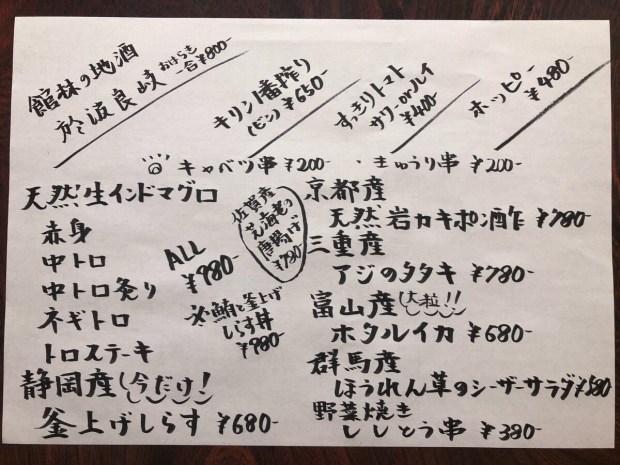 館林の地酒
於波良岐 おはらき
一合¥800-
キリン1番搾り
(ビン) ¥650-
すっきりトマト
サワーorハイ
¥400-
ホッピー
¥480-
キャベツ串 ¥200- ・きゅうり串 ¥200-
天然生インドマグロ
赤身
中トロ
中トロ炙り
ネギトロ
トロステーキ
ALL
¥980-
佐賀産
芝海老の
唐揚げ
¥780-
鮪と釜上げ
しらす丼
¥980-
静岡産 今だけ!
釜上げしらす ¥680-
京都産
天然岩カキポン酢 ¥780-
三重産
アジのタタキ ¥780-
富山産 大粒!!
ホタルイカ ¥680-
群馬産
ほうれん草のシーザーサラダ ¥580
野菜焼き
ししとう串 ¥380-